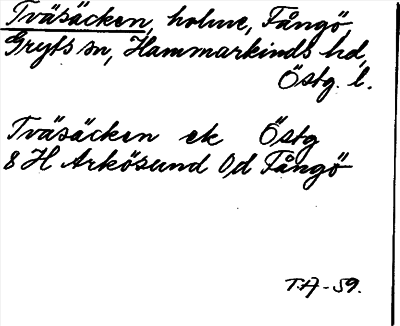 Tväsäcken, holme, Fångö
Gryts sn, Hammarkinds hd,
Östg. l.
Tväsäcken ek Östg
8 H Arkösund Od Fångö
T.H-59.